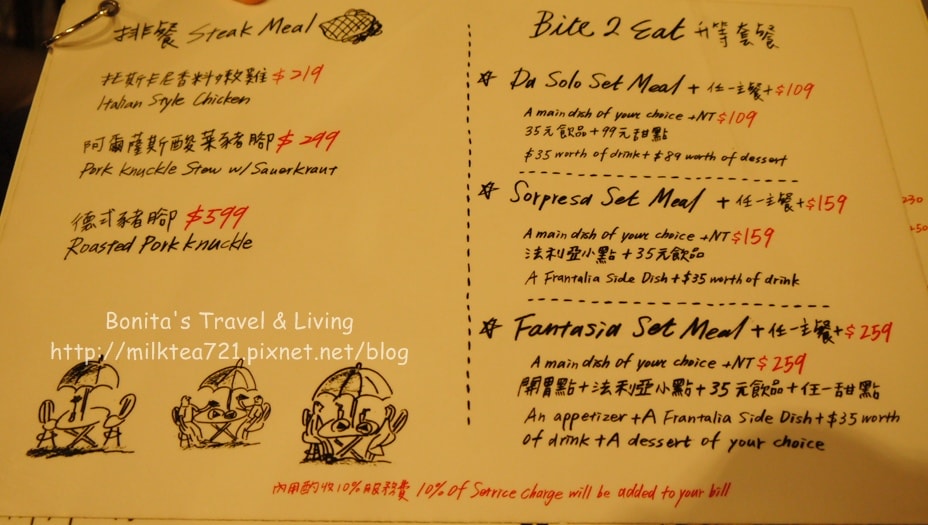 排餐 Steak Meal
托斯卡尼香料嫩雞 $219
Italian Style Chicken
阿爾薩斯酸菜豬腳 $299
Pork Knuckle Stew w/ Sauerkraut
德式豬腳 $599
Roasted Pork Knuckle
Bonita's Travel & Living
http://milktea721.pixnet.net/blog
Bite 2 Eat 升等套餐
Da Solo Set Meal + 任一主餐+$109
A main dish of your choice +NT$109
35元飲品+99元甜點
$35 worth of drink+$89 worth of dessert
Sorpresa Set Meal + 任一主餐+$159
A main dish of your choice +NT$159
法利亞小點+35元飲品
A Frantalia Side Dish+$35 worth of drink
Fantasia Set Meal + 任一主餐+$259
A main dish of your choice +NT$259
開胃點+法利亞小點+35元飲品+任一甜點
An appetizer +A Frantalia Side Dish+$35 worth
of drink +A dessert of your choice
內用酌收10%服務費 10% of Service charge will be added to your bill